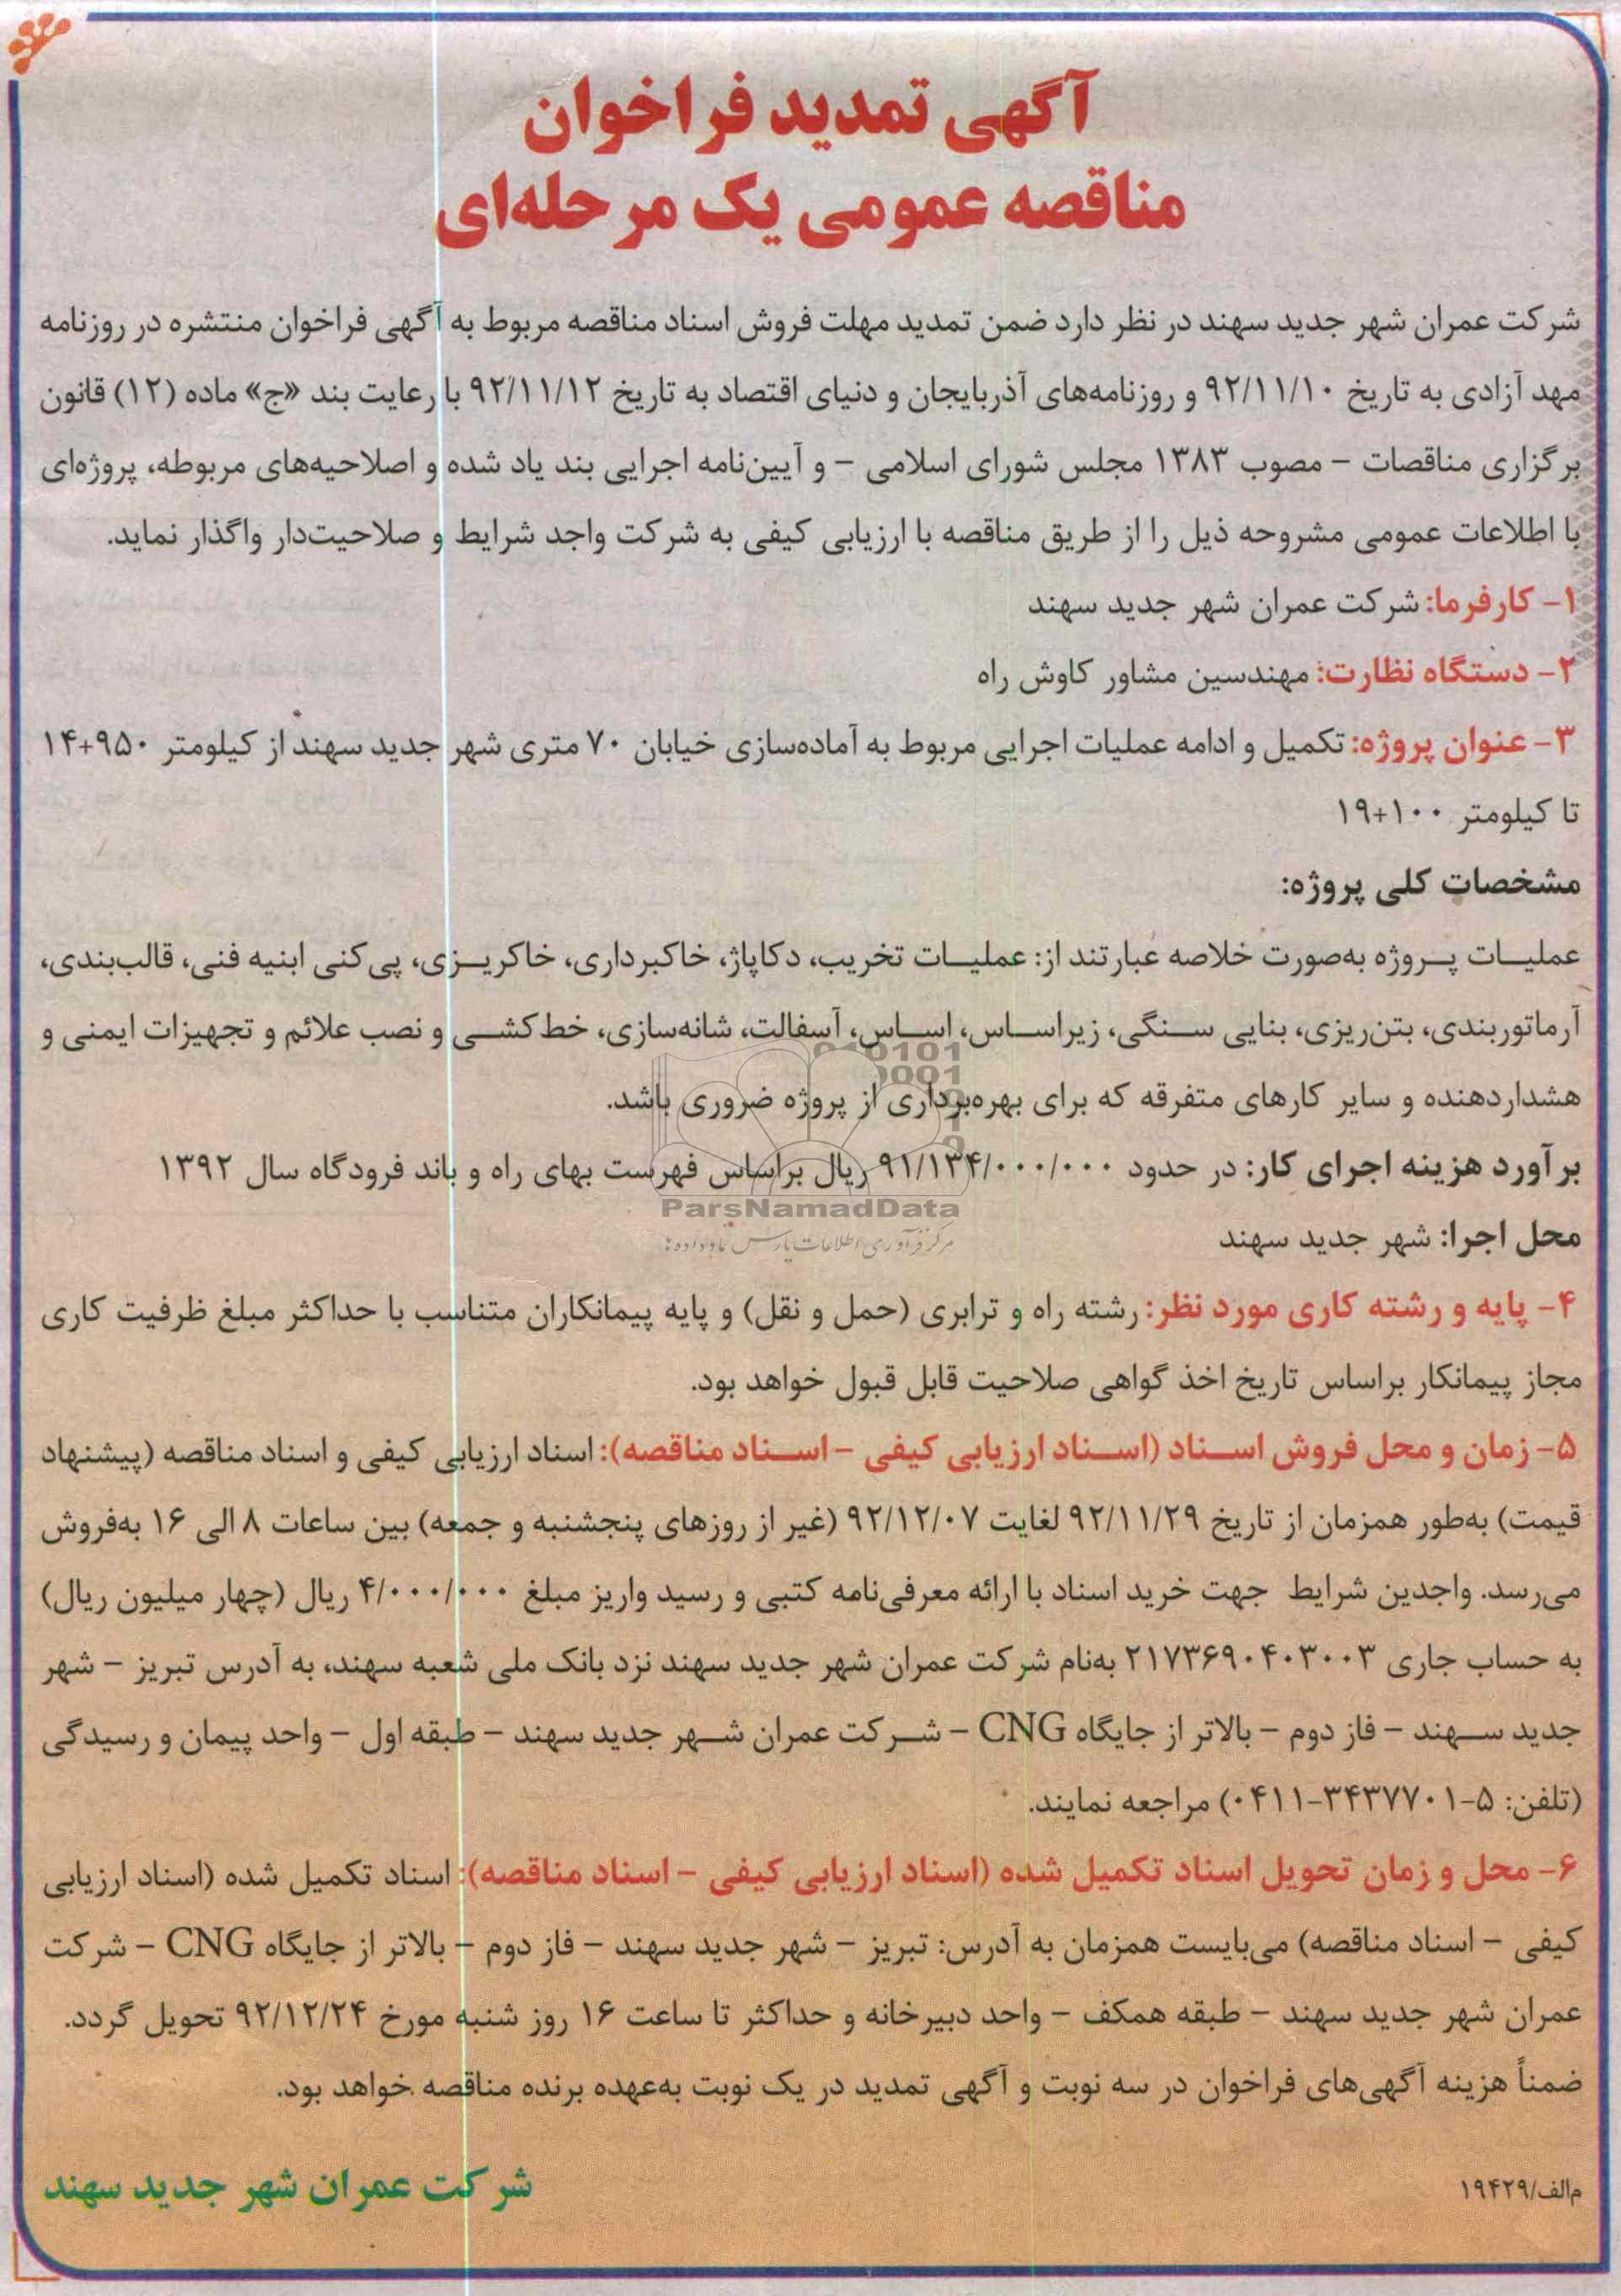 آگهی تمدید فراخوان
مناقصه عمومی یک مرحله‌ای
شرکت عمران شهر جدید سهند در نظر دارد ضمن تمدید مهلت فروش اسناد مناقصه مربوط به آگهی فراخوان منتشره در روزنامه
مهد آزادی به تاریخ ۹۲/۱۱/۱۰ و روزنامه‌های آذربایجان و دنیای اقتصاد به تاریخ ۹۲/۱۱/۱۲ با رعایت بند «ج» ماده (۱۲) قانون
برگزاری مناقصات – مصوب ۱۳۸۳ مجلس شورای اسلامی – و آیین‌نامه اجرایی بند یاد شده و اصلاحیه‌های مربوطه، پروژه‌ای
با اطلاعات عمومی مشروحه ذیل را از طریق مناقصه با ارزیابی کیفی به شرکت واجد شرایط و صلاحیت‌دار واگذار نماید.
۱- کارفرما: شرکت عمران شهر جدید سهند
۲- دستگاه نظارت: مهندسین مشاور کاوش راه
۳- عنوان پروژه: تکمیل و ادامه عملیات اجرایی مربوط به آماده‌سازی خیابان ۷۰ متری شهر جدید سهند از کیلومتر ۹۵۰+۱۴
تا کیلومتر ۱۰۰+۱۹
مشخصات کلی پروژه:
عملیات پروژه به‌صورت خلاصه عبارتند از: عملیات تخریب، دکاپاژ، خاکبرداری، خاکریزی، پی‌کنی ابنیه فنی، قالب‌بندی،
آرماتوربندی، بتن‌ریزی، بنایی سنگی، زیراساس، اساس، آسفالت، شانه‌سازی، خط‌کشی و نصب علائم و تجهیزات ایمنی و
هشداردهنده و سایر کارهای متفرقه که برای بهره‌برداری از پروژه ضروری باشد.
برآورد هزینه اجرای کار: در حدود ۹۱/۱۳۴/۰۰۰/۰۰۰ ریال براساس فهرست بهای راه و باند فرودگاه سال ۱۳۹۲
ParsNamadData
مرکز فرآوری اطلاعات پارس نماد داده‌ها
محل اجرا: شهر جدید سهند
۴- پایه و رشته کاری مورد نظر: رشته راه و ترابری (حمل و نقل) و پایه پیمانکاران متناسب با حداکثر مبلغ ظرفیت کاری
مجاز پیمانکار براساس تاریخ اخذ گواهی صلاحیت قابل قبول خواهد بود.
۵- زمان و محل فروش اسناد (اسناد ارزیابی کیفی – اسناد مناقصه): اسناد ارزیابی کیفی و اسناد مناقصه (پیشنهاد
قیمت) به‌طور همزمان از تاریخ ۹۲/۱۱/۲۹ لغایت ۹۲/۱۲/۰۷ (غیر از روزهای پنجشنبه و جمعه) بین ساعات ۸ الی ۱۶ به‌فروش
می‌رسد. واجدین شرایط جهت خرید اسناد با ارائه معرفی‌نامه کتبی و رسید واریز مبلغ ۴/۰۰۰/۰۰۰ ریال (چهار میلیون ریال)
به حساب جاری ۲۱۷۳۶۹۰۴۰۳۰۰۳ به‌نام شرکت عمران شهر جدید سهند نزد بانک ملی شعبه سهند، به آدرس تبریز – شهر
جدید سهند – فاز دوم – بالاتر از جایگاه CNG – شرکت عمران شهر جدید سهند – طبقه اول – واحد پیمان و رسیدگی
(تلفن: ۵-۳۴۳۷۷۰۱-۰۴۱۱) مراجعه نمایند.
۶- محل و زمان تحویل اسناد تکمیل شده (اسناد ارزیابی کیفی – اسناد مناقصه): اسناد تکمیل شده (اسناد ارزیابی
کیفی – اسناد مناقصه) می‌بایست همزمان به آدرس: تبریز – شهر جدید سهند – فاز دوم – بالاتر از جایگاه CNG – شرکت
عمران شهر جدید سهند – طبقه همکف – واحد دبیرخانه و حداکثر تا ساعت ۱۶ روز شنبه مورخ ۹۲/۱۲/۲۴ تحویل گردد.
ضمناً هزینه آگهی‌های فراخوان در سه نوبت و آگهی تمدید در یک نوبت به‌عهده برنده مناقصه خواهد بود.
م‌الف/۱۹۴۲۹
شرکت عمران شهر جدید سهند